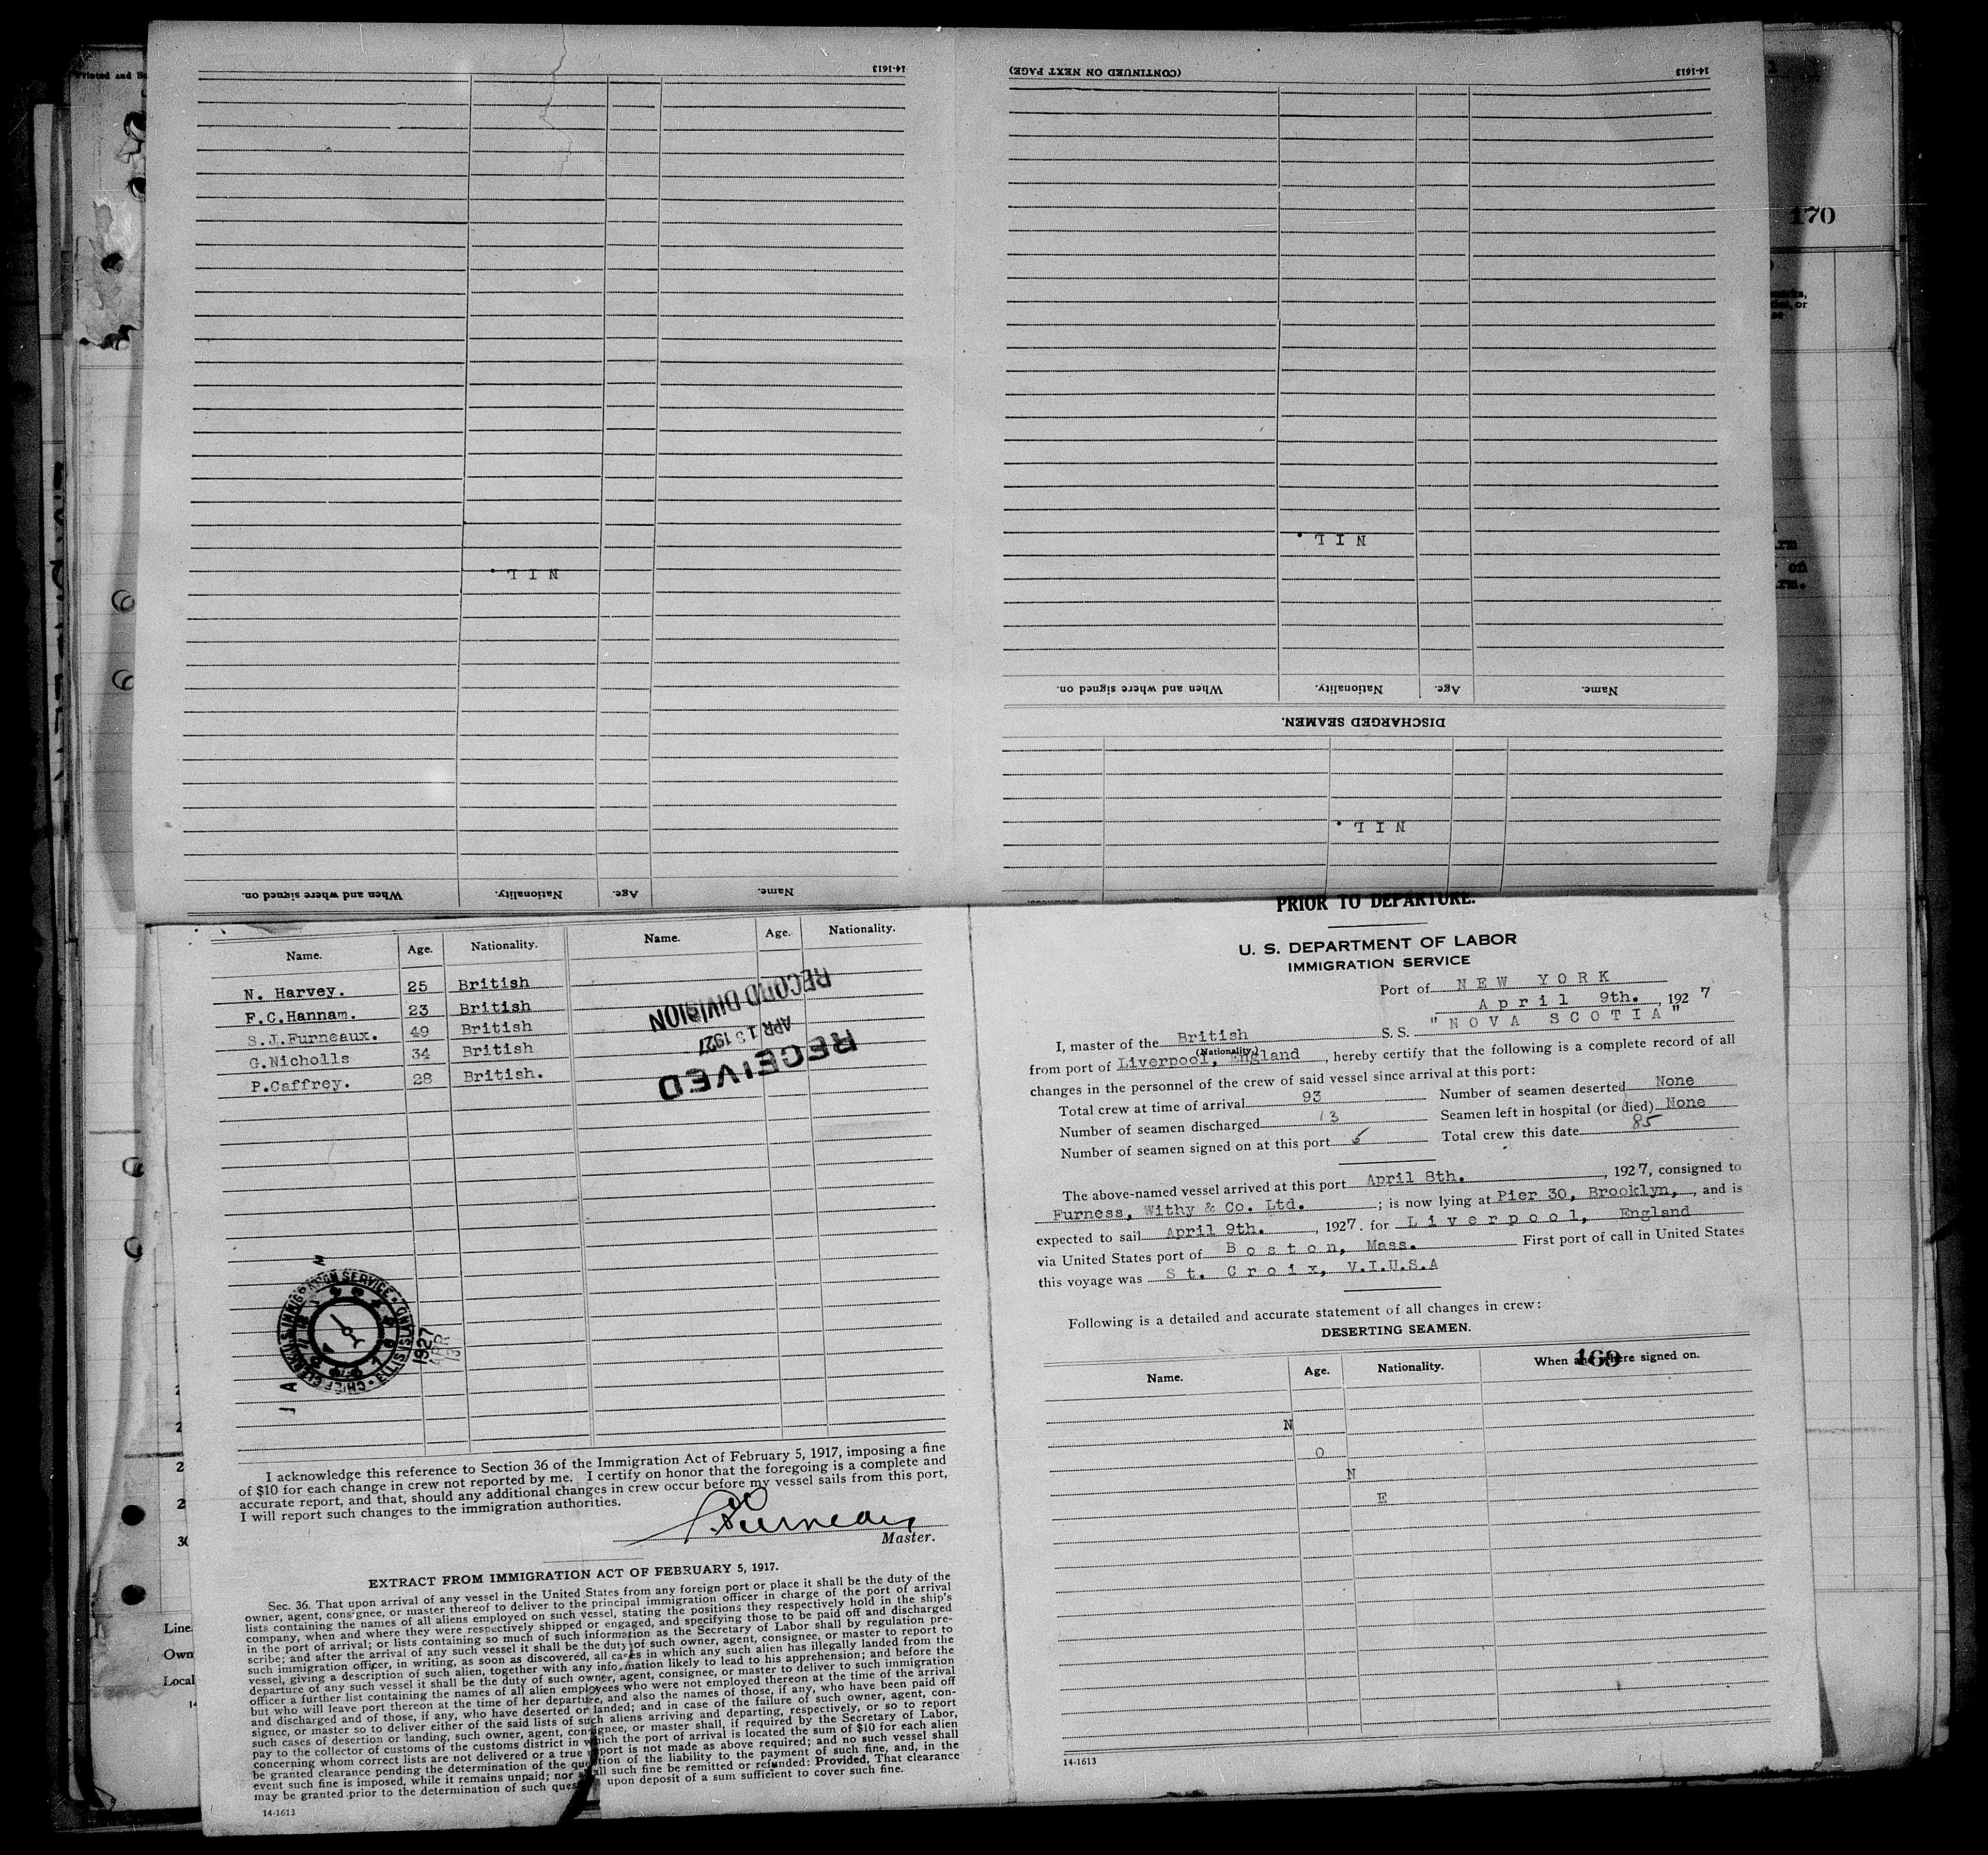 Printed and
14-1613
(CONTINUED ON NEXT PAGE)
14-1613
170
NIL.
NIL.
When and where signed on.
Nationality.
Age.
Name.
DISCHARGED SEAMEN.
NIL.
When and where signed on.
Nationality.
Age.
Name.
Name. Age. Nationality. Name. Age. Nationality.
N. Harvey. 25 British
F.C.Hannam. 23 British
S.J.Furneaux. 49 British
G.Nicholls 34 British
P.Caffrey. 28 British.
RECEIVED
APR 13 1927
RECORD DIVISION
1927
APR
13
I acknowledge this reference to Section 36 of the Immigration Act of February 5, 1917, imposing a fine
of $10 for each change in crew not reported by me. I certify on honor that the foregoing is a complete and
accurate report, and that, should any additional changes in crew occur before my vessel sails from this port,
I will report such changes to the immigration authorities.
Furneaux
Master.
EXTRACT FROM IMMIGRATION ACT OF FEBRUARY 5, 1917.
Sec. 36. That upon arrival of any vessel in the United States from any foreign port or place it shall be the duty of the
owner, agent, consignee, or master thereof to deliver to the principal immigration officer in charge of the port of arrival
lists containing the names of all aliens employed on such vessel, stating the positions they respectively hold in the ship's
company, when and where they were respectively shipped or engaged, and specifying those to be paid off and discharged
in the port of arrival; or lists containing so much of such information as the Secretary of Labor shall by regulation pre-
scribe; and after the arrival of any such vessel it shall be the duty of such owner, agent, consignee, or master to report to
such immigration officer, in writing, as soon as discovered, all cases in which any such alien has illegally landed from the
vessel, giving a description of such alien, together with any information likely to lead to his apprehension; and before the
departure of any such vessel it shall be the duty of such owner, agent, consignee, or master to deliver to such immigration
officer a further list containing the names of all alien employees who were not employed thereon at the time of the arrival
but who will leave port thereon at the time of her departure, and also the names of those, if any, who have been paid off
and discharged and of those, if any, who have deserted or landed; and in case of the failure of such owner, agent, con-
signee, or master so to deliver either of the said lists of such aliens arriving and departing, respectively, or so to report
such cases of desertion or landing, such owner, agent, consignee, or master shall, if required by the Secretary of Labor,
pay to the collector of customs of the customs district in which the port of arrival is located the sum of $10 for each alien
concerning whom correct lists are not delivered or a true report is not made as above required; and no such vessel shall
be granted clearance pending the determination of the question of the liability to the payment of such fine, and, in the
event such fine is imposed, while it remains unpaid; nor shall such fine be remitted or refunded: Provided, That clearance
may be granted prior to the determination of such ques upon deposit of a sum sufficient to cover such fine.
14-1613
PRIOR TO DEPARTURE.
U. S. DEPARTMENT OF LABOR
IMMIGRATION SERVICE
Port of NEW YORK
April 9th., 1927
I, master of the British S. S. "NOVA SCOTIA"
(Nationality.)
from port of Liverpool, England, hereby certify that the following is a complete record of all
changes in the personnel of the crew of said vessel since arrival at this port:
Total crew at time of arrival 93 Number of seamen deserted None
Number of seamen discharged 13 Seamen left in hospital (or died) None
Number of seamen signed on at this port 5 Total crew this date 85
The above-named vessel arrived at this port April 8th., 1927, consigned to
Furness, Withy & Co. Ltd.; is now lying at Pier 30, Brooklyn,, and is
expected to sail April 9th., 1927. for Liverpool, England
via United States port of Boston, Mass. First port of call in United States
this voyage was St. Croix, V.I.U.S.A
Following is a detailed and accurate statement of all changes in crew:
DESERTING SEAMEN.
169
Name. Age. Nationality. When and where signed on.
N
O
N
E
14-1613
Line
Own
Local